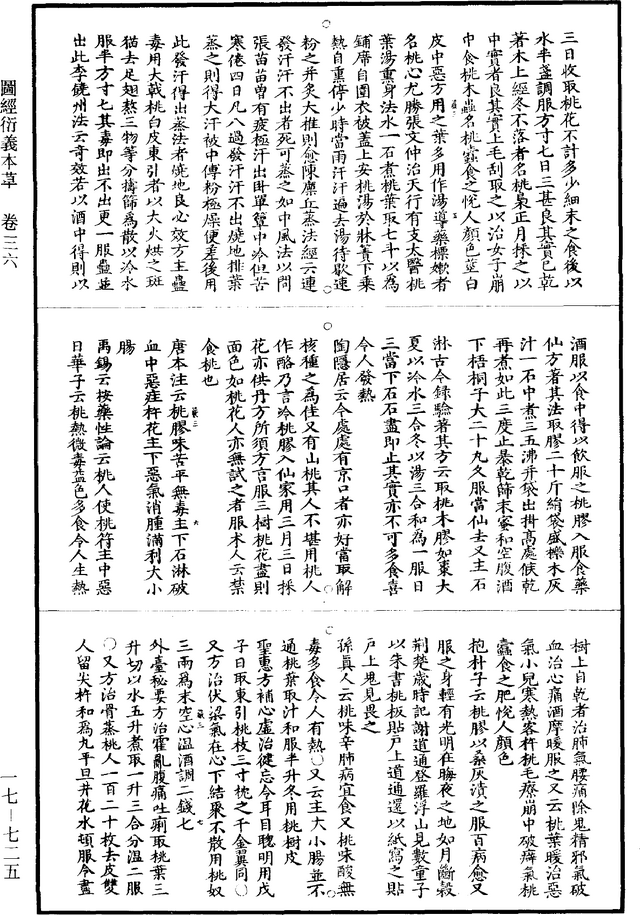 三日收取桃花不計多少細末之食後以
水半盞調服方寸七日三甚良其實已乾
著木上經冬不落者名桃梟正月採之以
中實者良其實上毛刮取之以治女子崩
中食桃木蟲名桃蠹食之悅人顏色莖白
皮中惡方用之葉多用作湯導藥標嫩者
名桃心尤勝張文仲治天行有支太醫桃
葉湯熏身法水一石煮桃葉取七斗以為
鋪席自圍衣被蓋上安桃湯於牀簀下乗
熱自熏停少時當雨汗汗遍去湯待歇速
粉之并灸大椎則愈陳廩丘蒸法經云連
發汗汗不出者死可蒸之如中風法以問
張苗苗曾有疲極汗出臥單簟中冷但苦
寒倦四日凡八過發汗汗不出燒地排葉
蒸之則得大汗被中傅粉極燥便差後用
此發汗得出蒸法者燒地良心效方主蠱
毒用大戟桃白皮東引者以大火烘之斑
猫去足翅熬三物等分擣篩為散以冷水
服半方寸七其毒即出不出更一服蠱並
出此李饒州法云奇效若以酒中得則以
酒服以食中得以飲服之桃膠入服食藥
仙方著其法取膠二十斤絹袋盛櫟木灰
汁一石中煮三五沸并袋出掛髙處候乾
再煮如此三度止暴乾篩末蜜和空腹酒
下梧桐子大二十九久服當仙去又主石
淋古今録驗著其方云取桃木膠如棗大
夏以冷水三合冬以湯三合和為一服日
三當下石石盡即止其實亦不可多食喜
令人發熱
陶隱居云今處處有京口者亦好當取解
核種之為佳又有山桃其人不堪用桃人
作酪乃言冷桃膠入仙家用三月三日採
花亦供丹方所須方言服三樹桃花盡則
面色如桃花人亦無試之者服术人云禁
食桃也
唐本注云桃膠味苦平無毒主下石淋破
血中惡疰杵花主下惡氣消腫滿利大小
腸
禹錫云按藥性論云桃人使桃符主中惡
日華子云桃熱微毒益色多食令人生熱
樹上自乾者治肺氣腰痛除鬼精邪氣破
血治心痛酒摩暖服之又云桃葉暖治惡
氣小兒寒熱客忤桃毛療崩中破癖氣桃
蠹食之肥悅人顏色
抱朴子云桃膠以桑灰漬之服百病愈又
服之身輕有光明在晦夜之地如月斷糓
荆楚歲時記謝道通登羅浮山見數童子
以朱書桃板貼戸上道通還以紙寫之貼
戸上鬼見畏之
孫真人云桃味辛肺病宜食又桃味酸無
毒多食令人有熱○又云主大小腸並不
通桃葉取汁和服半升冬用桃樹皮
聖惠方補心虛治健忘令耳目聰明用戊
子日取東引桃枝三寸枕之千金翼同○
又方治伏梁氣在心下結聚不散用桃奴
三兩為末空心温酒調二錢七
外臺秘要方治霍亂腹痛吐痢取桃葉三
升切以水五升煮取一升三合分温二服
○又方治骨蒸桃人一百二十枚去皮雙
人留尖杵和為丸平旦井花水頓服令盡
圖經衍義本草　卷三六
一七—七二五